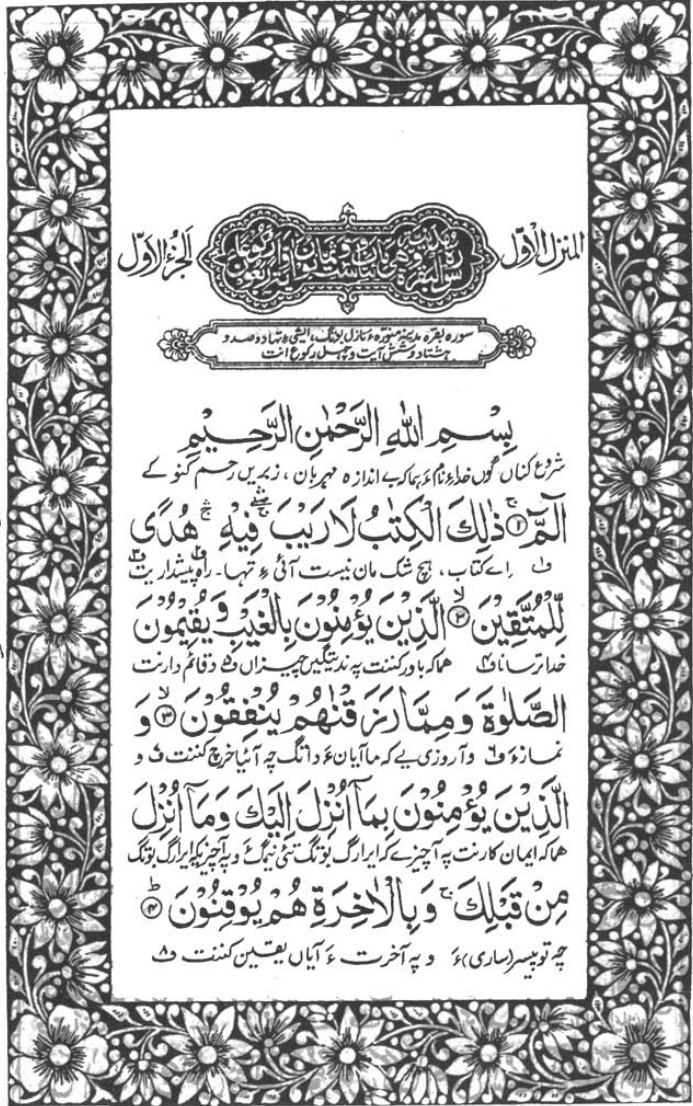 المنزل الاوّل
سورة البقرة مدنية وهي مائتان وست وثمانون آية واربعون ركوعا
الجزء الاوّل
سوره بقره مدینہ منوّره ءَ نازل بوتگ، ایشی ءِ تہا دو صد و
ہشتاد و شش آیت و چہل رکوع انت
بِسْمِ اللّٰهِ الرَّحْمٰنِ الرَّحِيْمِ
شروع کناں گوں خداءِ نام ءَ ہما کہ بے اندازه مہربان، زبریں رحم کنوکے
الٓمّٓ ۚ﴿۱﴾ ذٰلِكَ الْكِتٰبُ لَا رَيْبَ ۛ فِيْهِ ۛ هُدًى
ف۱ اے کتاب، ہچ شک مان نیست آئی ءِ تہا۔ ف۲ راه پیشداریت ف۳
لِّلْمُتَّقِيْنَ ۙ﴿۲﴾ الَّذِيْنَ يُؤْمِنُوْنَ بِالْغَيْبِ وَيُقِيْمُوْنَ
خداترساناں ف۴ ہما کہ باور کننت پہ ندیتگیں چیزاں ف۵ و قائم دارنت
الصَّلٰوةَ وَمِمَّا رَزَقْنٰهُمْ يُنْفِقُوْنَ ۙ﴿۳﴾ وَ
نمازءَ ف۶ و آ روزی ے کہ ما آیان ءَ داتگ چہ آئیا خرچ کننت ف۷ و
الَّذِيْنَ يُؤْمِنُوْنَ بِمَآ اُنْزِلَ اِلَيْكَ وَمَآ اُنْزِلَ
ہما کہ ایمان کارنت پہ آ چیزے کہ ایرارگ بوتگ تئی نیمگءَ و پہ آ چیز کہ ایرارگ بوتگ
مِنْ قَبْلِكَ ۚ وَبِالْاٰخِرَةِ هُمْ يُوْقِنُوْنَ ؕ﴿۴﴾
چہ تو پیسر (ساری) ءَ و پہ آخرت ءَ آیاں یقین کننت ف۸